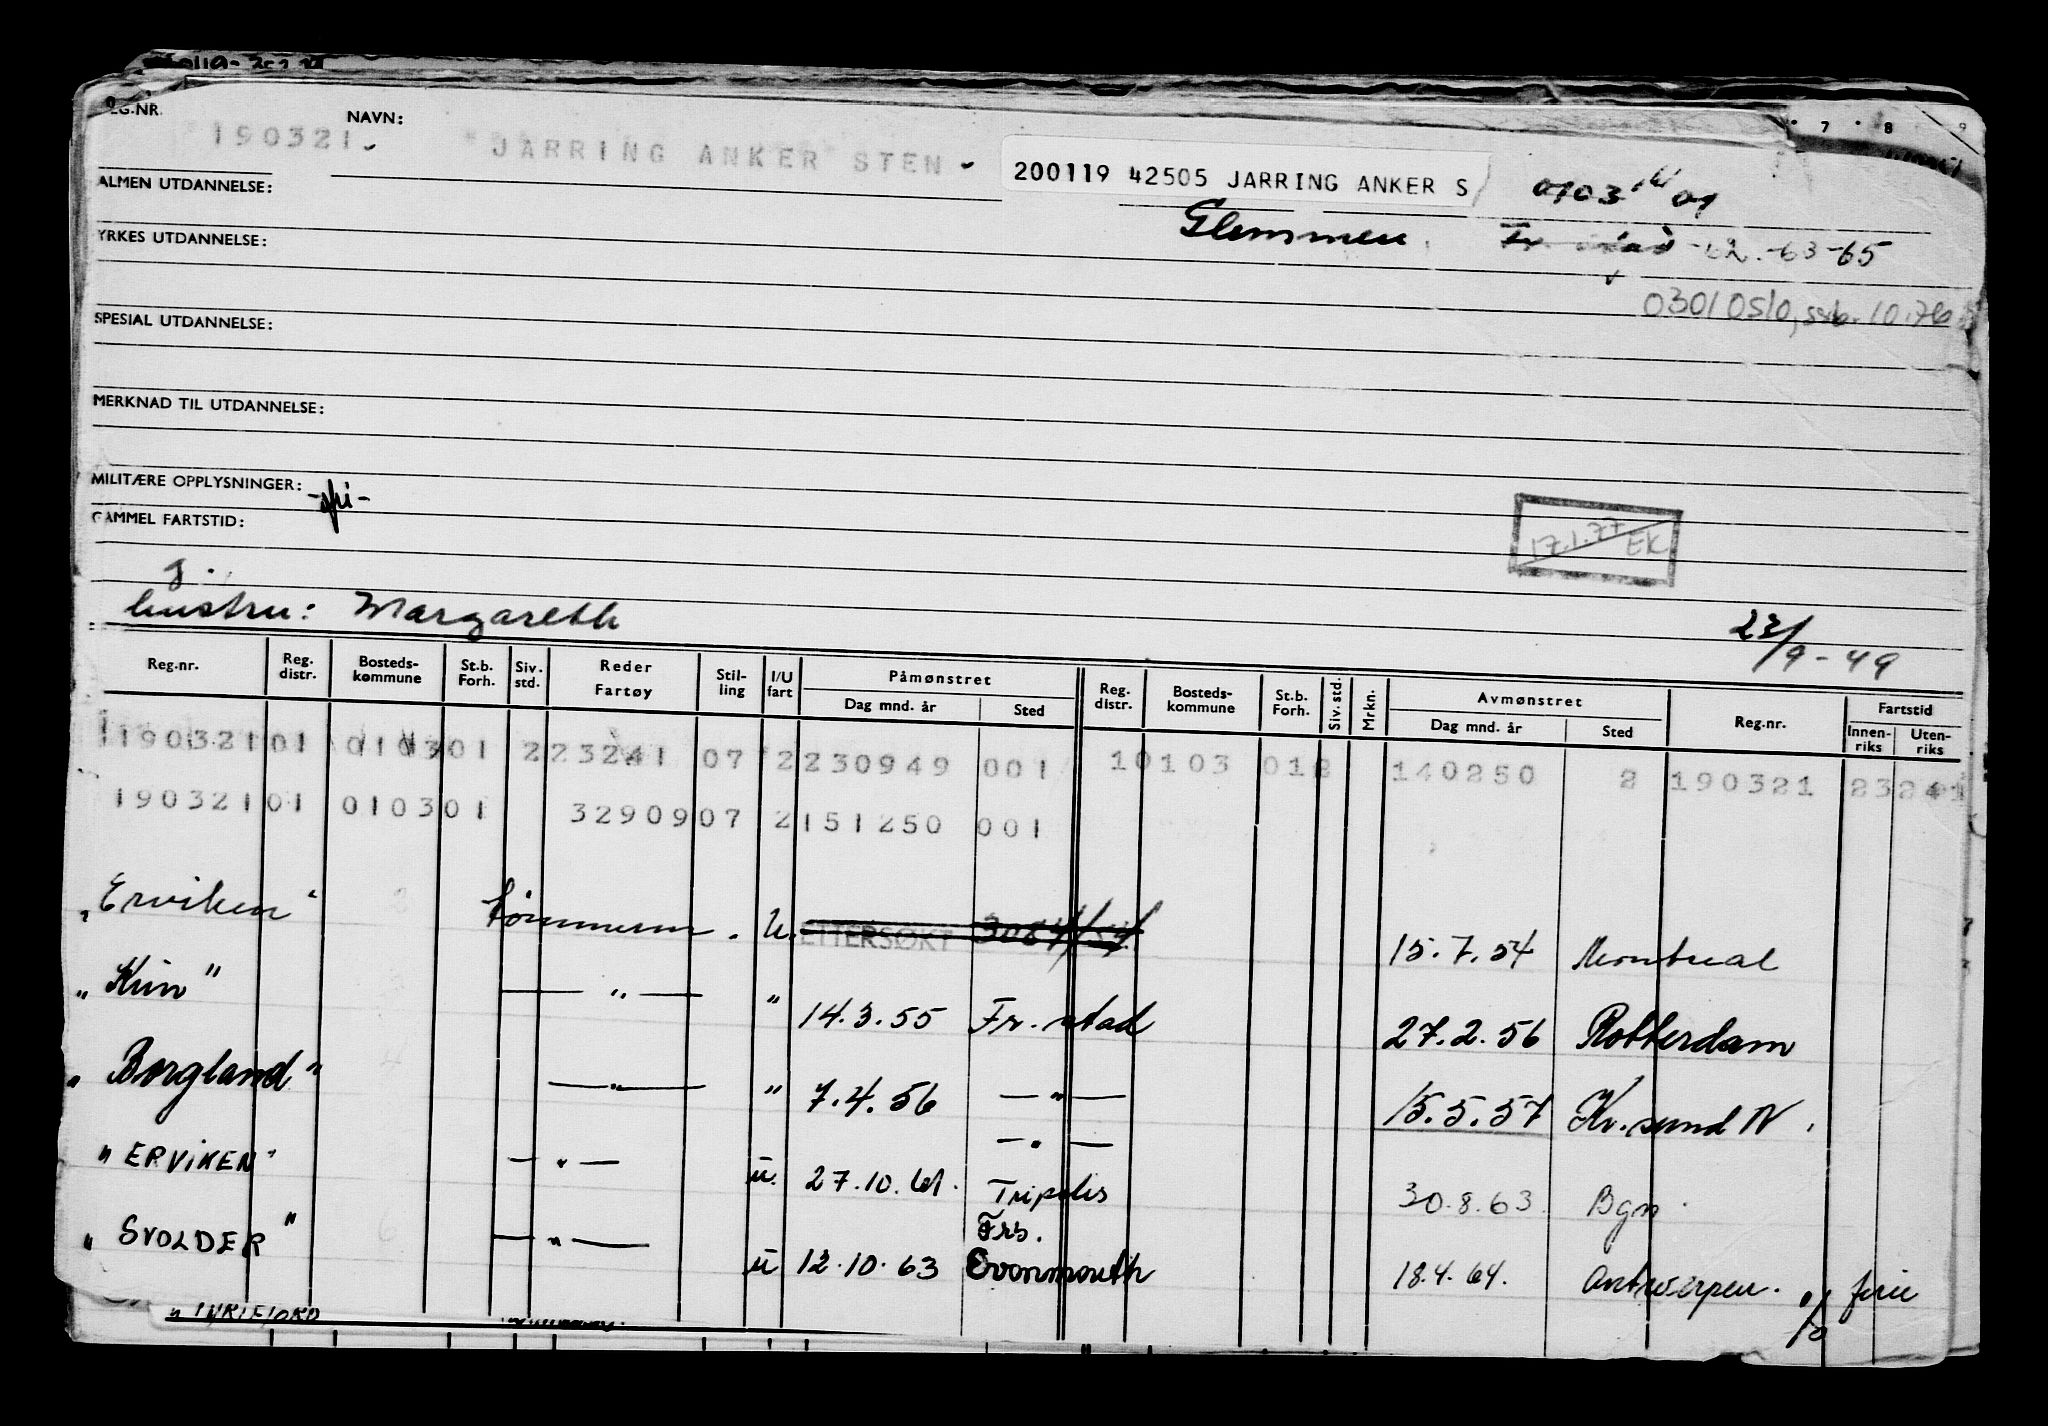 REG.NR. NAVN:
190321 JARRING ANKER STEN 200119 42505 JARRING ANKER S 0103 01
ALMEN UTDANNELSE:
Glemmen -62 -63 -65
YRKES UTDANNELSE:
0301 Oslo, 10.76
SPESIAL UTDANNELSE:
MERKNAD TIL UTDANNELSE:
MILITÆRE OPPLYSNINGER:
GAMMEL FARTSTID:
17.1.77 EK
g.
hustru: Margareth
23/9-49
Reg.nr. Reg. distr. Bosteds-kommune St.b. Forh. Siv. std. Reder Fartøy Stil-ling I/U fart Påmønstret Dag mnd. år Sted Reg. distr. Bosteds-kommune St.b. Forh. Siv. std. Mrkn. Avmønstret Dag mnd. år Sted Reg.nr. Fartstid Innen-riks Uten-riks
190321 01 0103 01 2 23241 07 2 230949 001 10103 012 140250 2 190321 23241
190321 01 0103 01 32909 07 2 151250 001
"Erviken" tømmerm. U. ETTERSØKT 15.7.54 Montreal
"Kim" — " — " 14.3.55 Fr.stad 27.2.56 Rotterdam
"Borgland" — " — " 7.4.56 — " — 15.5.57 Kr.sund N.
— " —
"ERVIKEN" — " — u. 27.10.61. Tripolis 30.8.63 Bgn.
Frs.
"SVOLDER" — " — u 12.10.63 Avonmouth 18.4.64. Antwerpen. ferie
"TYRIFJORD